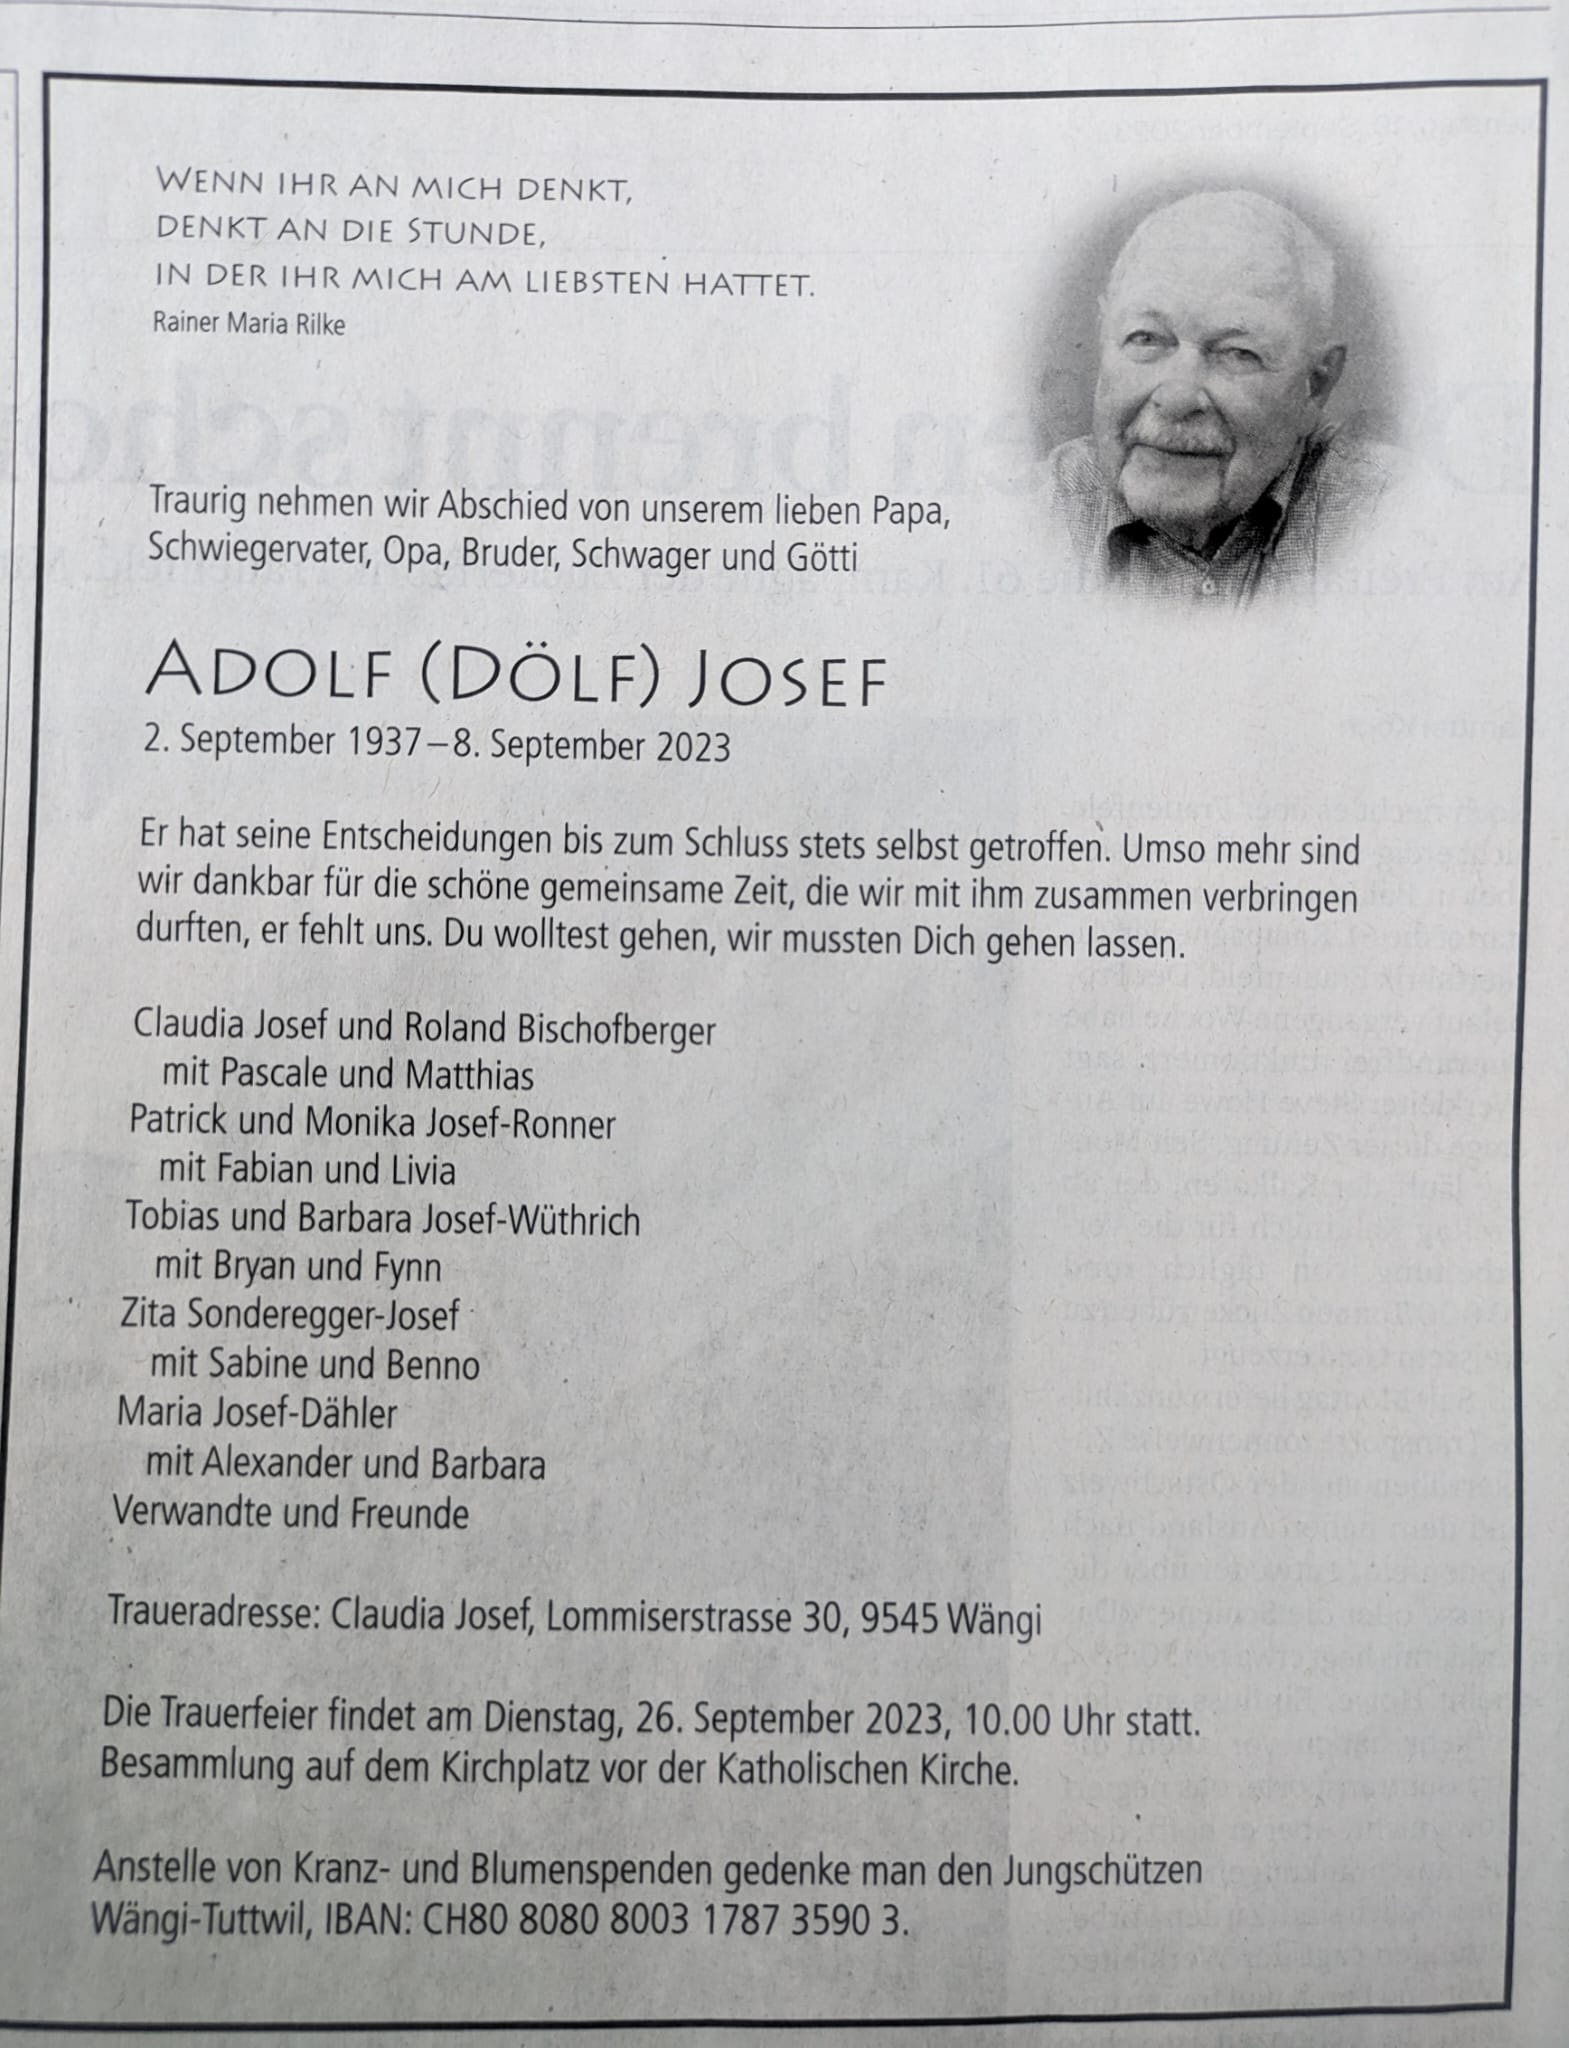 WENN IHR AN MICH DENKT,
DENKT AN DIE STUNDE,
IN DER IHR MICH AM LIEBSTEN HATTET.
Rainer Maria Rilke
Traurig nehmen wir Abschied von unserem lieben Papa,
Schwiegervater, Opa, Bruder, Schwager und Götti
ADOLF (DÖLF) JOSEF
2. September 1937–8. September 2023
Er hat seine Entscheidungen bis zum Schluss stets selbst getroffen. Umso mehr sind
wir dankbar für die schöne gemeinsame Zeit, die wir mit ihm zusammen verbringen
durften, er fehlt uns. Du wolltest gehen, wir mussten Dich gehen lassen.
Claudia Josef und Roland Bischofberger
mit Pascale und Matthias
Patrick und Monika Josef-Ronner
mit Fabian und Livia
Tobias und Barbara Josef-Wüthrich
mit Bryan und Fynn
Zita Sonderegger-Josef
mit Sabine und Benno
Maria Josef-Dähler
mit Alexander und Barbara
Verwandte und Freunde
Traueradresse: Claudia Josef, Lommiserstrasse 30, 9545 Wängi
Die Trauerfeier findet am Dienstag, 26. September 2023, 10.00 Uhr statt.
Besammlung auf dem Kirchplatz vor der Katholischen Kirche.
Anstelle von Kranz- und Blumenspenden gedenke man den Jungschützen
Wängi-Tuttwil, IBAN: CH80 8080 8003 1787 3590 3.